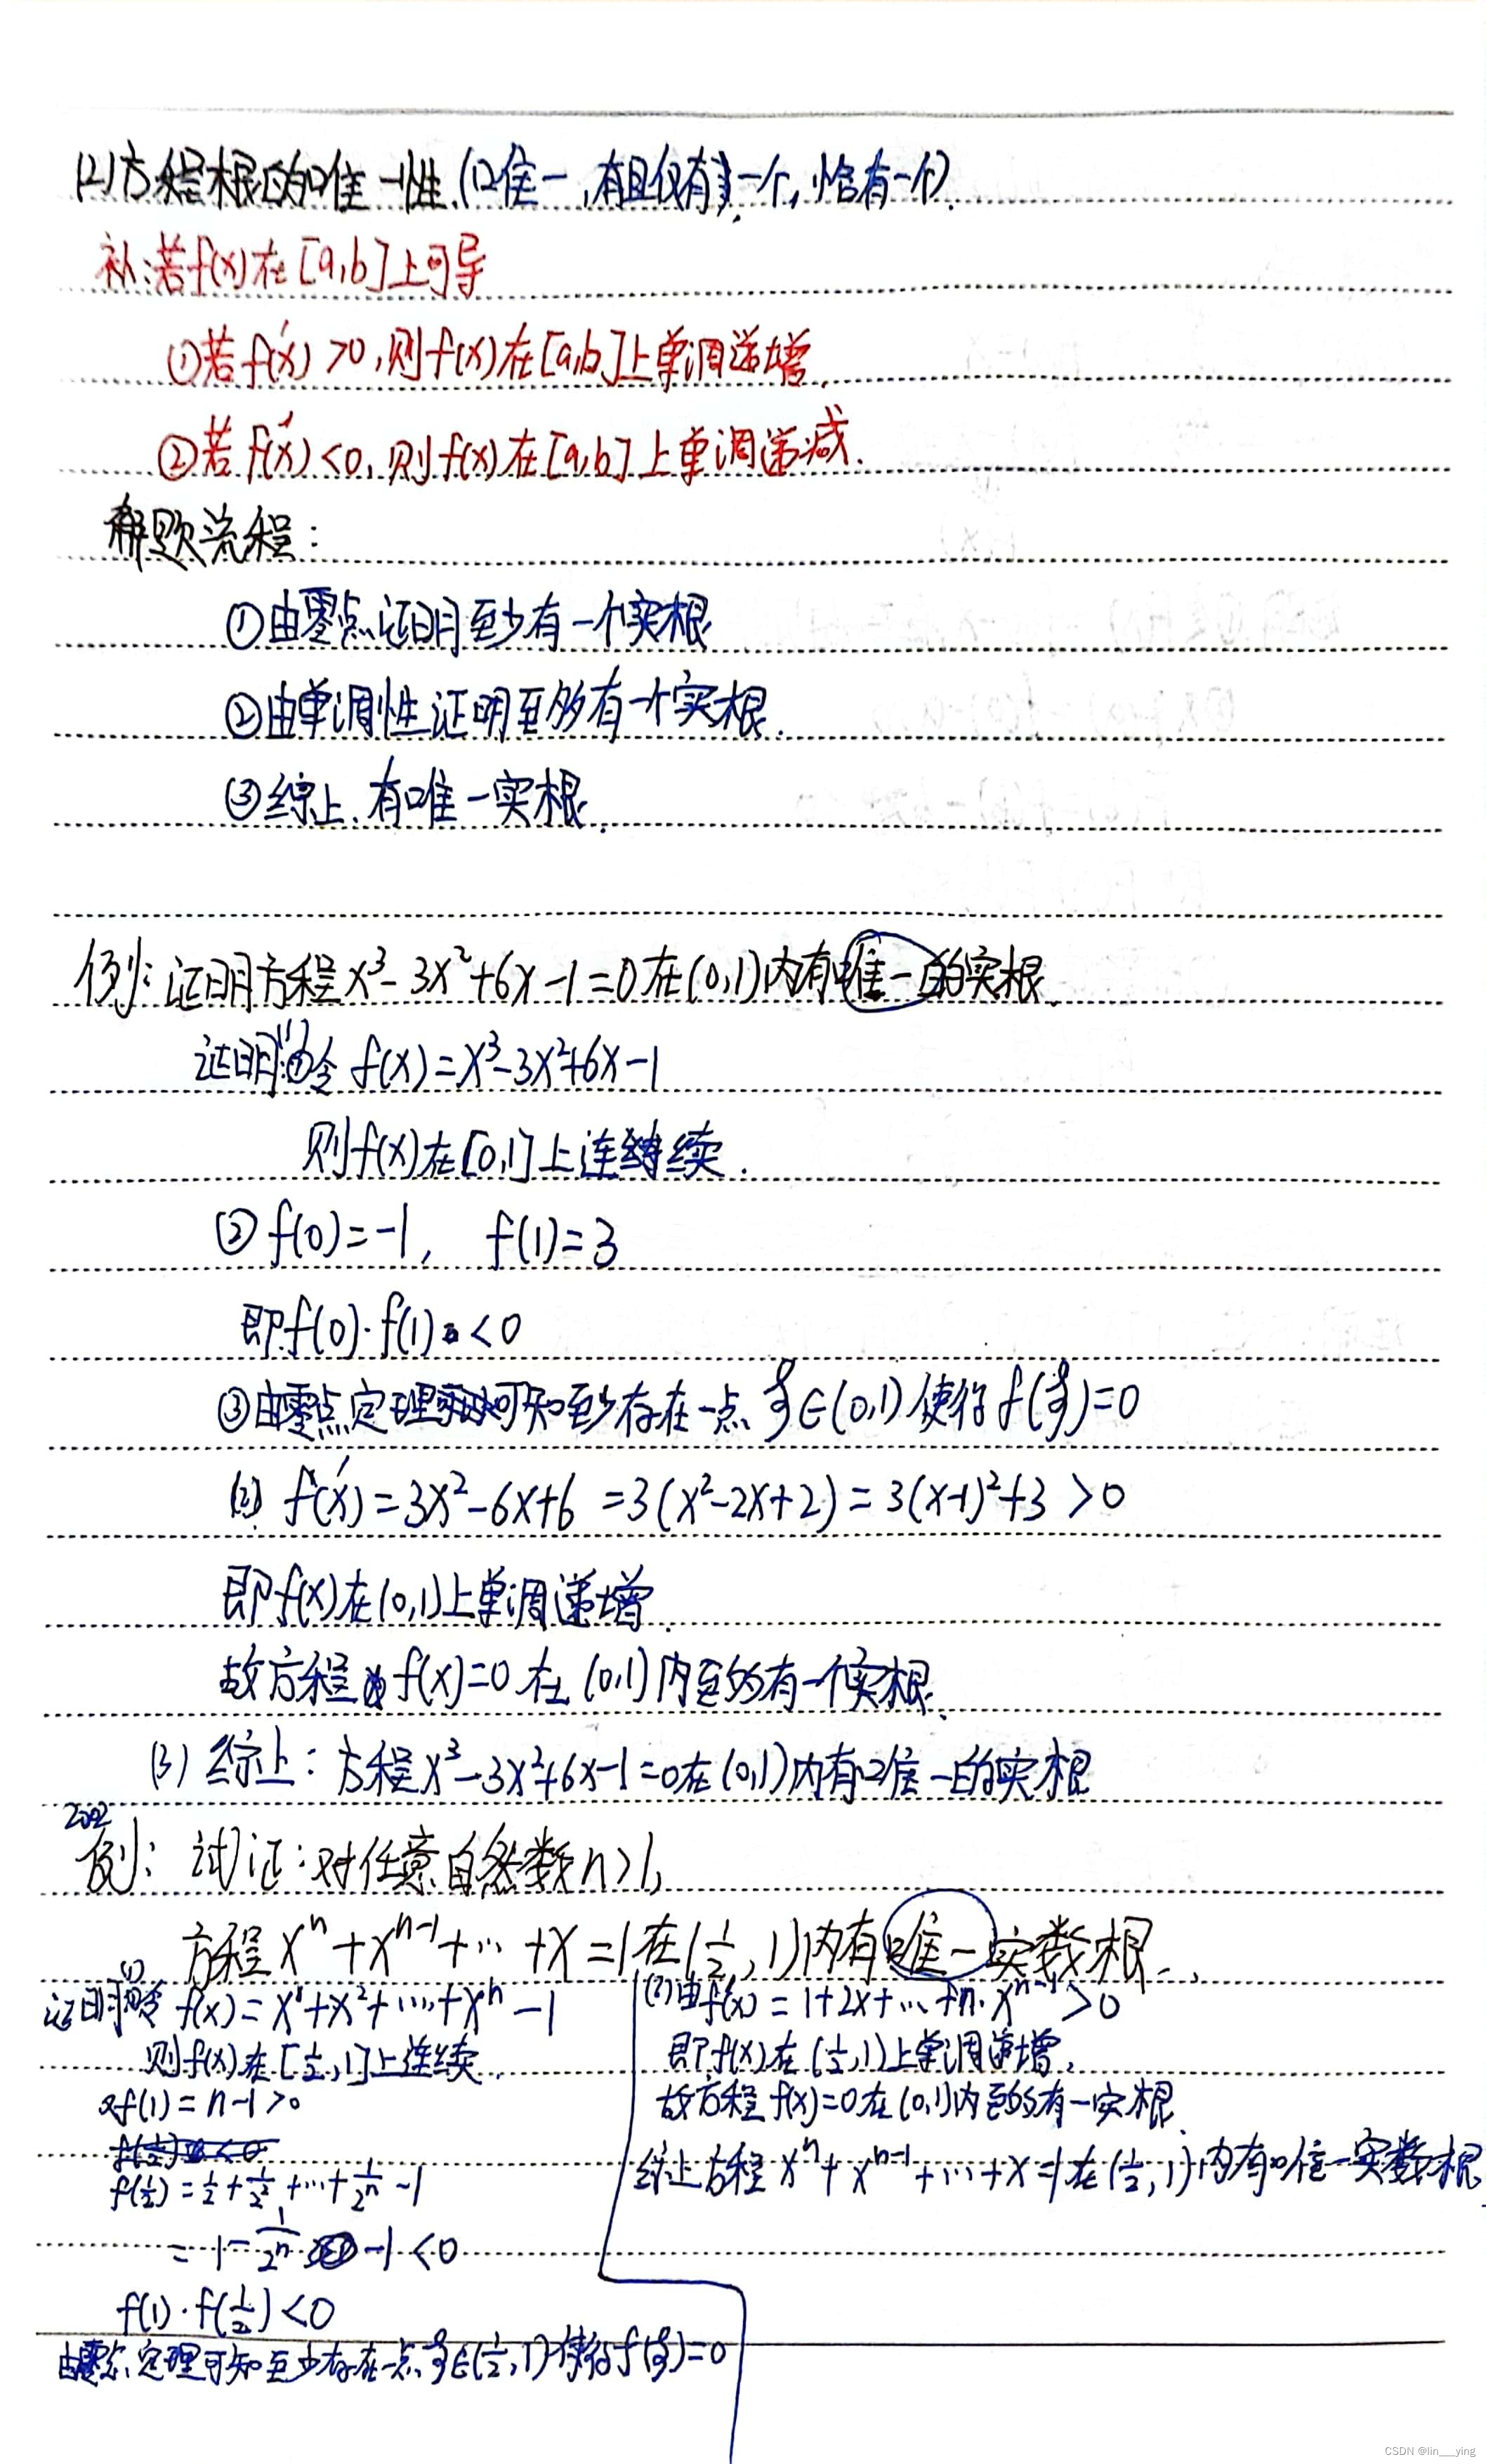 (2)方程根的唯一性.(唯一,有且仅有一个,恰有一个).
补:若f(x)在[a,b]上可导
①若f'(x)>0,则f(x)在[a,b]上单调递增.
②若f'(x)<0,则f(x)在[a,b]上单调递减.
解题流程:
①由零点证明至少有一个实根
②由单调性证明至多有一个实根.
③综上.有唯一实根.
例:证明方程x³-3x²+6x-1=0在(0,1)内有唯一的实根.
证明:(1)①令f(x)=x³-3x²+6x-1
则f(x)在[0,1]上连续.
② f(0)=-1, f(1)=3
即f(0)·f(1)<0
③由零点定理可知至少存在一点ξ∈(0,1)使得f(ξ)=0
(2) f'(x)=3x²-6x+6=3(x²-2x+2)=3(x-1)²+3>0
即f(x)在(0,1)上单调递增.
故方程f(x)=0在(0,1)内至多有一个实根.
(3)综上:方程x³-3x²+6x-1=0在(0,1)内有唯一的实根
2002
例:试证:对任意自然数n>1,
方程xⁿ+xⁿ⁻¹+…+x=1在(1/2,1)内有唯一实数根.
证明:(1)令f(x)=x¹+x²+…+xⁿ-1
则f(x)在[1/2,1]上连续.
又f(1)=n-1>0
f(1/2)=1/2+1/2²+…+1/2ⁿ-1
=1-1/2ⁿ-1<0
f(1)·f(1/2)<0
由零点定理可知至少存在一点ξ∈(1/2,1)使得f(ξ)=0
(2)由f'(x)=1+2x+…+n·xⁿ⁻¹>0
即f(x)在(1/2,1)上单调递增.
故方程f(x)=0在(0,1)内至多有一实根.
综上方程xⁿ+xⁿ⁻¹+…+x=1在(1/2,1)内有唯一实数根
CSDN @lin___ying